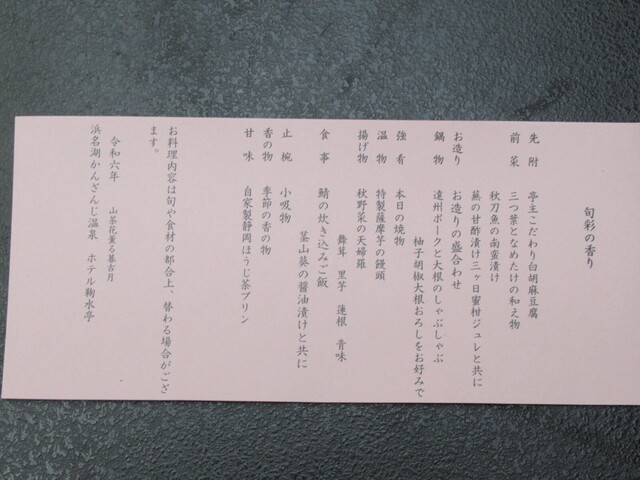 旬彩の香り
先附 亭主こだわり白胡麻豆腐
前菜 三つ葉となめたけの和え物
秋刀魚の南蛮漬け
蕪の甘酢漬け三ヶ日蜜柑ジュレと共に
お造り お造りの盛合わせ
鍋物 遠州ポークと大根のしゃぶしゃぶ
柚子胡椒大根おろしをお好みで
強肴 本日の焼物
温物 特製薩摩芋の饅頭
揚げ物 秋野菜の天婦羅
舞茸 里芋 蓮根 青味
食事 鯖の炊き込みご飯
茎山葵の醤油漬けと共に
止椀 小吸物
香の物 季節の香の物
甘味 自家製静岡ほうじ茶プリン
お料理内容は旬や食材の都合上、替わる場合がござ
います。
令和六年 山茶花薫る暮古月
浜名湖かんざんじ温泉 ホテル鞠水亭